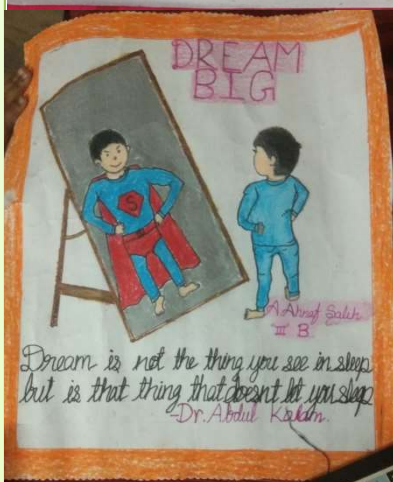 DREAM
BIG
S
A Ahnaf Salih
III B
Dream is not the thing you see in sleep
but is that thing that doesnt let you sleep
-Dr. Abdul Kalam.